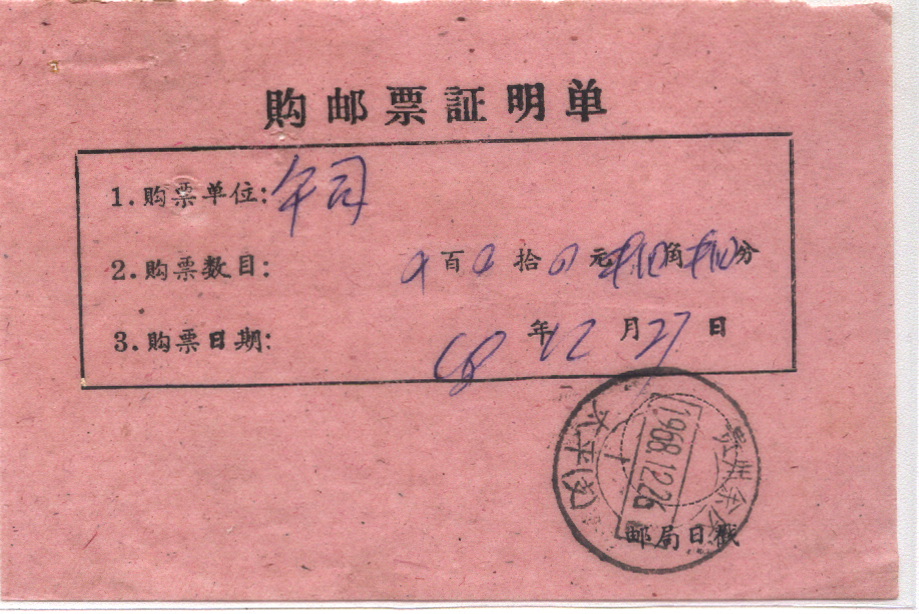 购邮票証明单
1.购票单位:午司
2.购票数目: 百 拾 元 角 分
3.购票日期: 68年12月27日
贵州余
1968.12.26
太平
邮局日戳